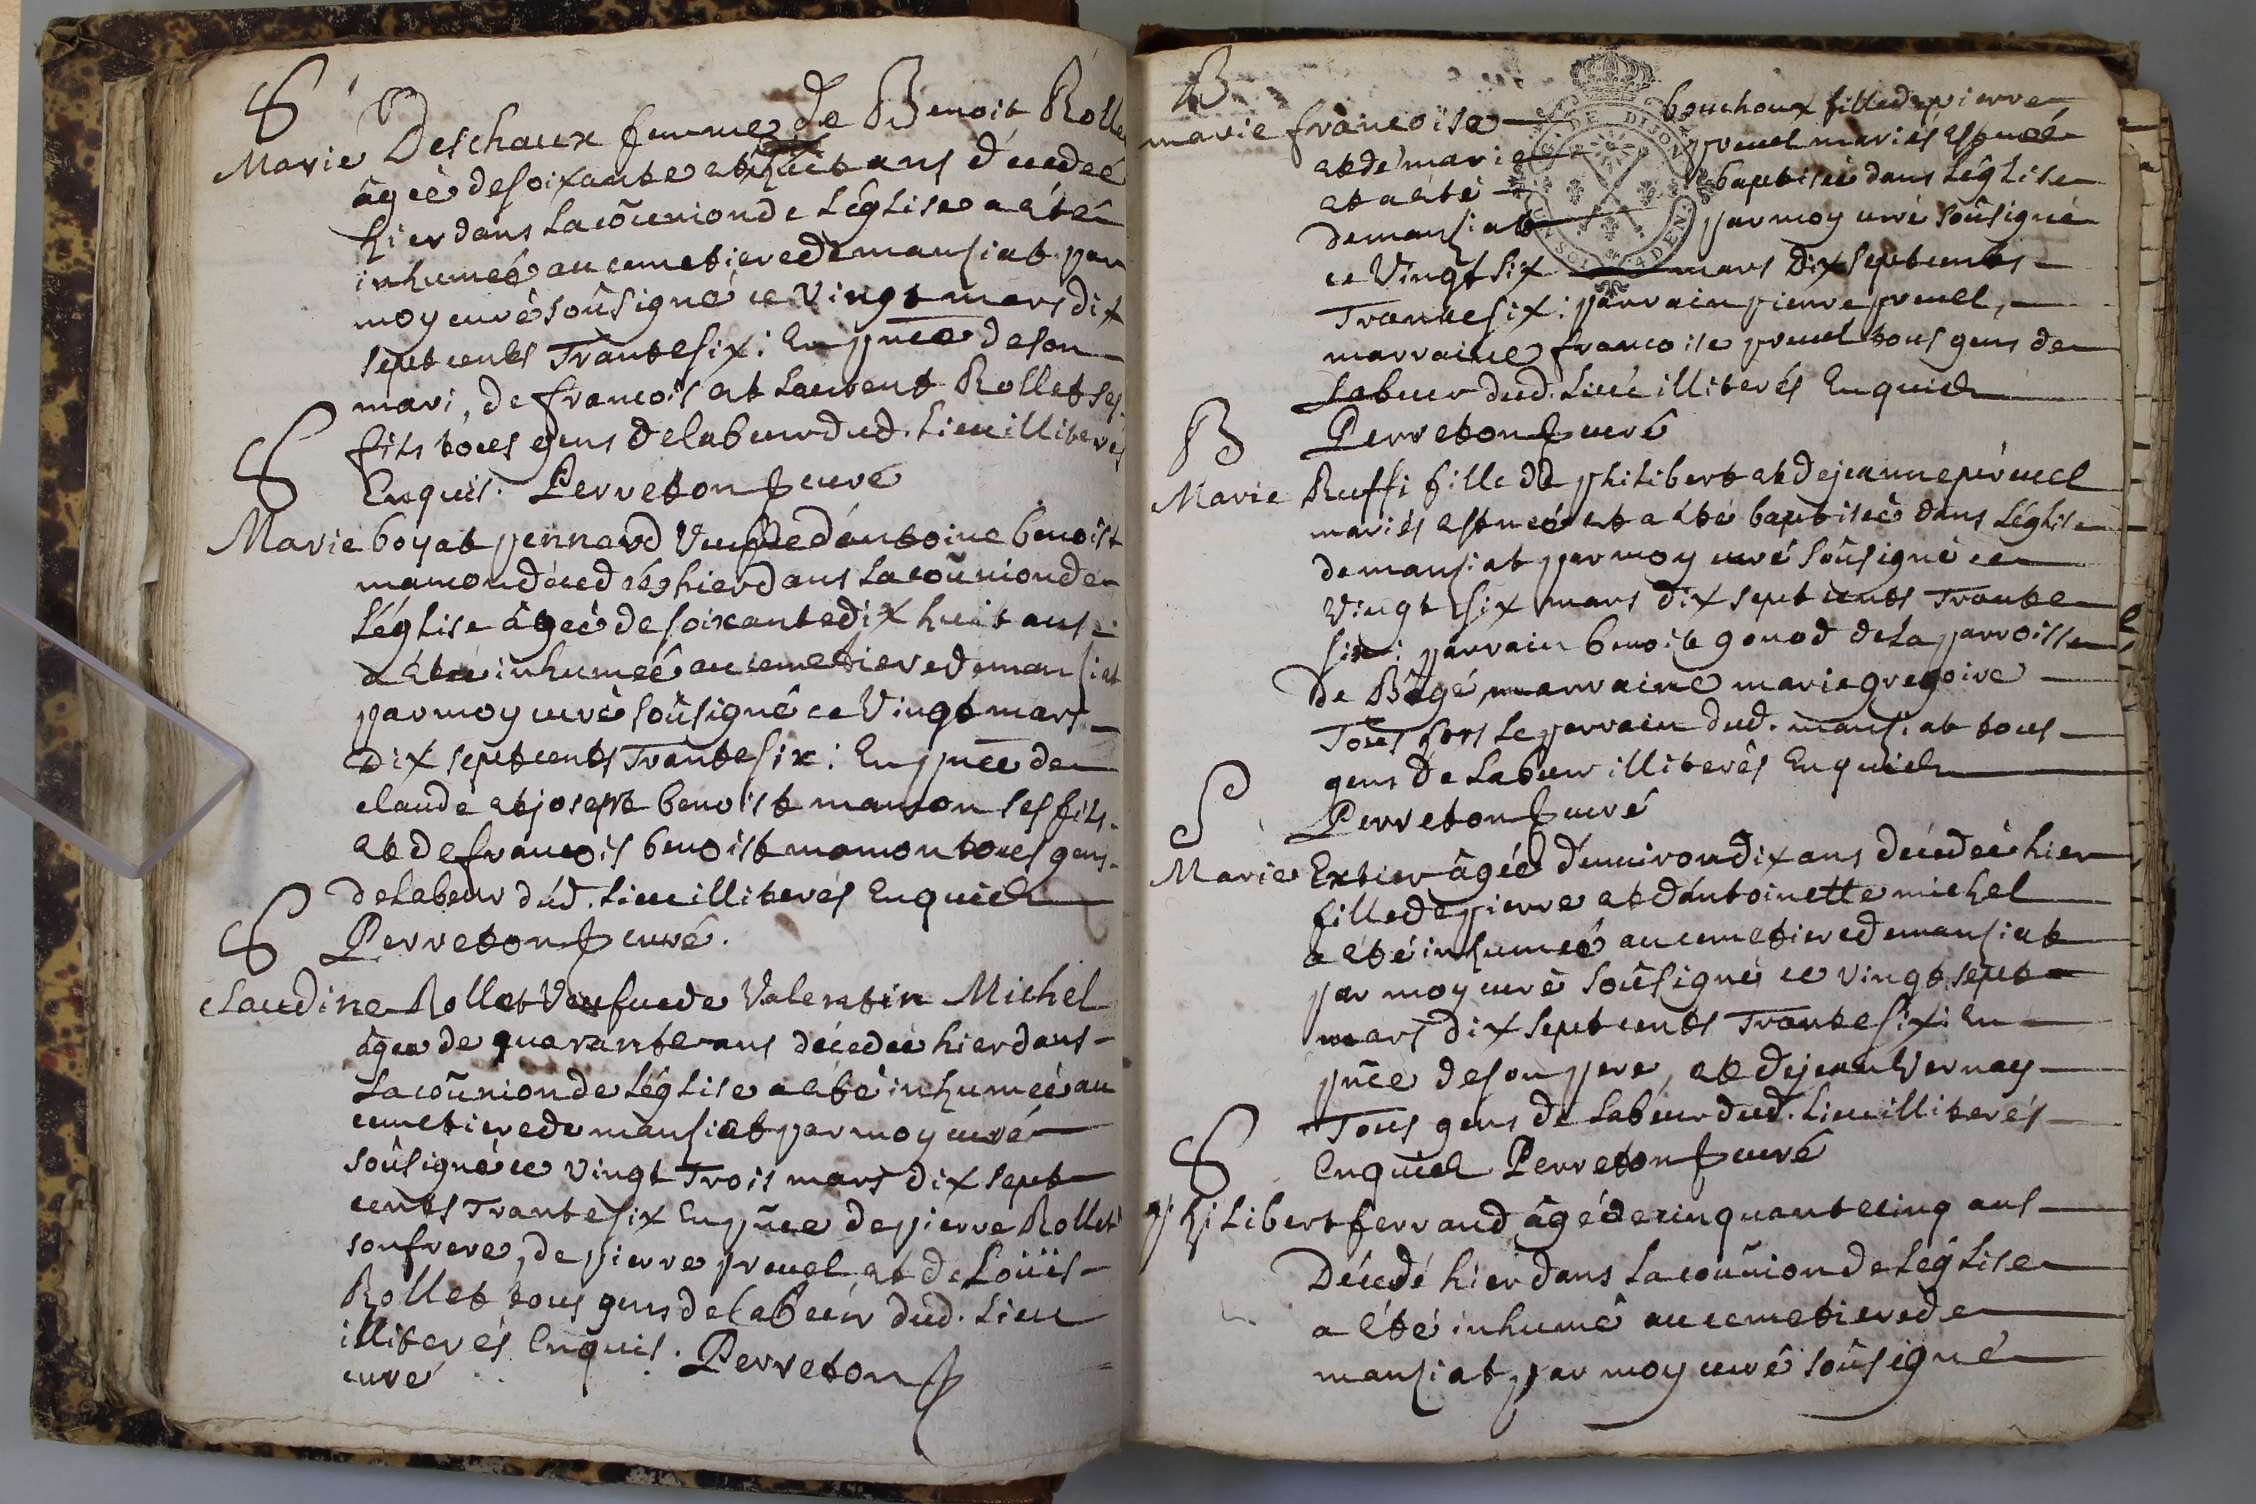 S
Marie Deschaux femme de Benoit Rollet
âgeé de soixante et huit ans decedeé
hier dans la coũunion de l'église a été
inhumeé au cemetiere de mansiat par
moy curé soûsigné ce Vingt mars dix
sept cents Trante six : En pñce de son
mari, de francois et Laurent Rollet ses
fils tous gens de labeur dud. Lieu illiterés
Enquis. Perreton curé
S
Marie boyat pennard Veufue d'antoine benoist
mamon décedeé hier dans la coũnion de
l'église âgeé de soixante dix huit ans
a été inhumeé au cemetiere de mansiat
par moy curé soûsigné ce Vingt mars
dix sept cents Trante six : En pñce de
claude et joseph benoist mamon ses fils
et de francois benoist mamon tous gens
de labeur dud. Lieu illiterés Enquis
Perreton curé.
S
Claudine Rollet Veufue de Valentin Michel
âgeé de quarante ans décedeé hier dans
la coũnion de l'église a été inhumeé au
cemetiere de mansiat par moy curé
soûsigné ce vingt Trois mars dix sept
cents Trante six En pñce de pierre Rollet
son frere, de pierre preuel et de Loüis
Rollet tous gens de labeur dud. Lieu
illiterés Enquis. Perreton
curé
B
marie francoise bouchoux fille de pierre
et de marie preuel mariés est neé
et a été baptiseé dans l'église
de mansiat par moy curé soûsigné
ce Vingt six mars Dix sept cents
Trante six : parrain pierre preuel,
marraine francoise preuel tous gens de
labeur dud. Lieu illiterés Enquis
Perreton curé
B
Marie Ruffi fille de philibert et de jeanne preuel
mariés est neé et a été baptiseé dans l'église
de mansiat par moy curé soûsigné ce
Vingt six mars dix sept cents Trante
six : parrain benoit gonod de la parroisse
de Bâgé, marraine marie gregoire
Tous hors le parrain dud. mansiat tous
gens de labeur illiterés Enquis
Perreton curé
S
Marie Extier âgeé d'enuiron dix ans décedeé hier
fille de pierre et d'antoinette michel
a été inhumeé au cemetiere de mansiat
par moy curé soûsigné ce vingt sept
mars dix sept cents Trante six : En
pñce de son pere, et de jean Vernay
Tous gens de labeur dud. Lieu illiterés
Enquis Perreton curé
S
philibert ferrand âgé de cinquante cinq ans
Décedé hier dans la coũnion de l'église
a été inhumé au cemetiere de
mansiat par moy curé soûsigné
DE DIJON